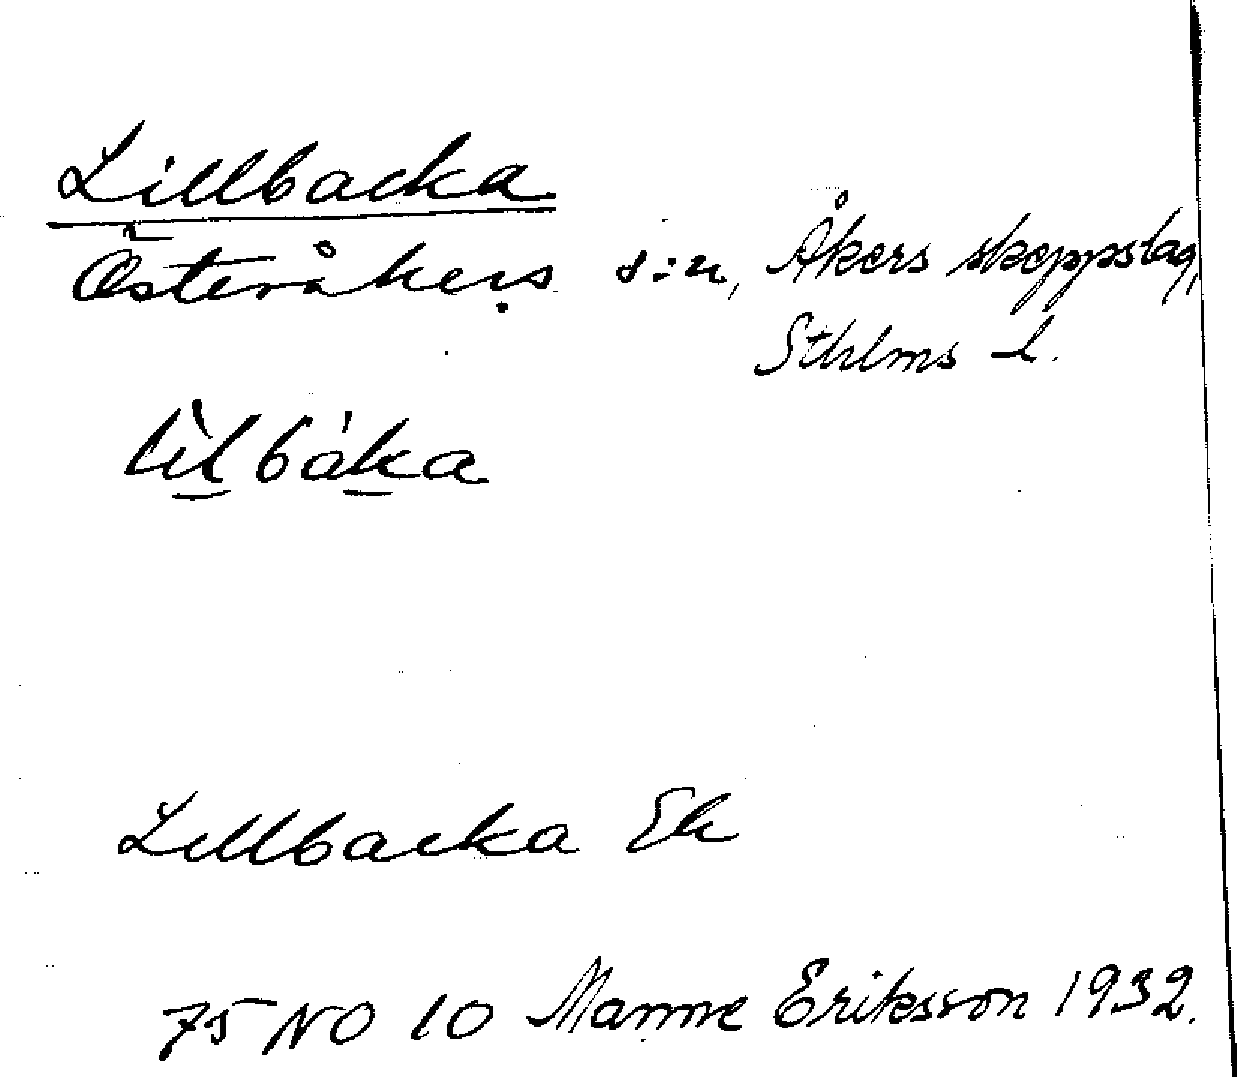 Lillbacka
Österåkers s:n, Åkers skeppslag,
Sthlms l.
lìlbáka
Lillbacka Ek
75 NO 10 Manne Eriksson 1932.